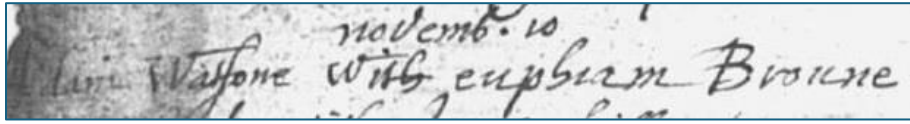 novemb. 10
Adam Watsone with eupham Broune